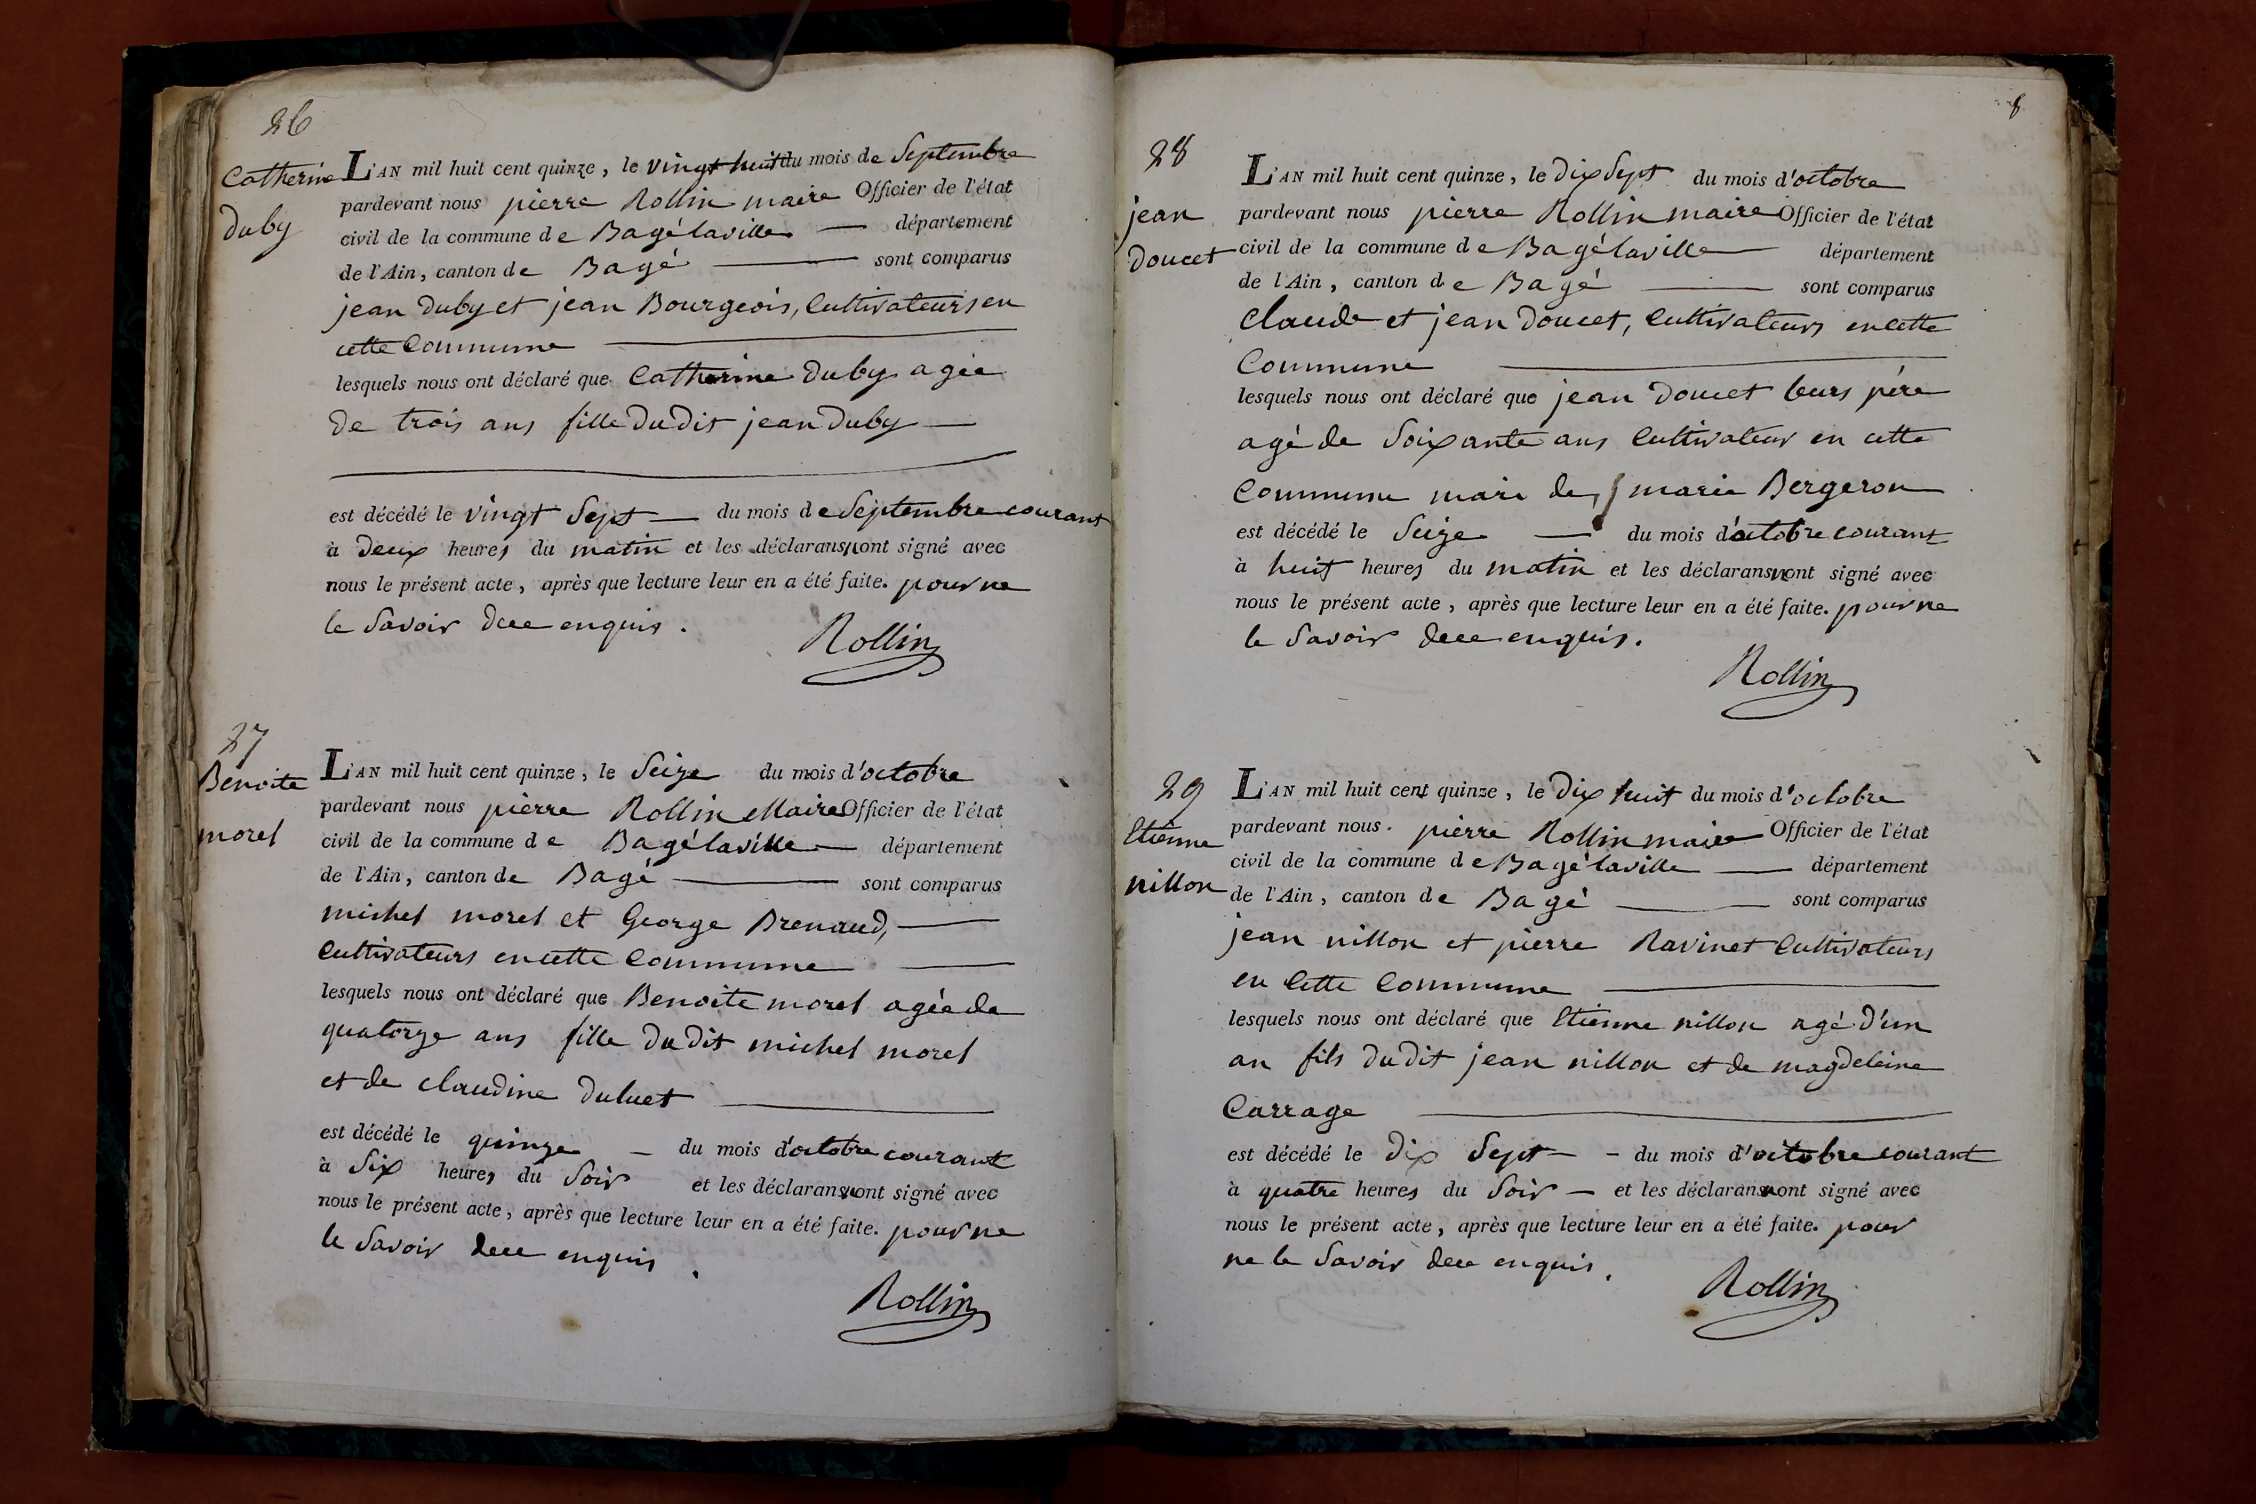 26
Catherine
duby
L'AN mil huit cent quinze, le vingt huit du mois de Septembre
pardevant nous pierre Rollin maire Officier de l'état
civil de la commune de Bagélaville département
de l'Ain, canton de Bagé sont comparus
jean duby et jean Bourgeois, Cultivateurs en
cette Commune
lesquels nous ont déclaré que Catherine duby agée
de trois ans fille dudit jean duby
est décédé le vingt Sept du mois de Septembre courant
à deux heures du matin et les déclarans n'ont signé avec
nous le présent acte, après que lecture leur en a été faite. pour ne
le Savoir de ce enquis.
Rollin
27
Benoite
morel
L'AN mil huit cent quinze, le Seize du mois d'octobre
pardevant nous pierre Rollin Maire Officier de l'état
civil de la commune de Bagélaville département
de l'Ain, canton de Bagé sont comparus
michel morel et George Brenaud,
Cultivateurs en cette Commune
lesquels nous ont déclaré que Benoite morel agée de
quatorze ans fille dudit michel morel
et de claudine duluet
est décédé le quinze du mois d'octobre courant
à Six heures du Soir et les déclarans n'ont signé avec
nous le présent acte, après que lecture leur en a été faite. pour ne
le Savoir de ce enquis.
Rollin
8
28
jean
doucet
L'AN mil huit cent quinze, le dix Sept du mois d'octobre
pardevant nous pierre Rollin maire Officier de l'état
civil de la commune de Bagélaville département
de l'Ain, canton de Bagé sont comparus
Claude et jean doucet, Cultivateurs en cette
Commune
lesquels nous ont déclaré que jean doucet leurs père
agé de Soixante ans Cultivateur en cette
Commune mari de marie Bergeron
est décédé le Seize du mois d'octobre courant
à huit heures du matin et les déclarans n'ont signé avec
nous le présent acte, après que lecture leur en a été faite. pour ne
le Savoir de ce enquis.
Rollin
29
Etienne
nillon
L'AN mil huit cent quinze, le dix huit du mois d'octobre
pardevant nous. pierre Rollin maire Officier de l'état
civil de la commune de Bagélaville département
de l'Ain, canton de Bagé sont comparus
jean nillon et pierre Ravinet Cultivateurs
en cette Commune
lesquels nous ont déclaré que Etienne nillon agé d'un
an fils dudit jean nillon et de magdeleine
Carrage
est décédé le dix Sept du mois d'octobre courant
à quatre heures du Soir et les déclarans n'ont signé avec
nous le présent acte, après que lecture leur en a été faite. pour
ne le Savoir de ce enquis.
Rollin